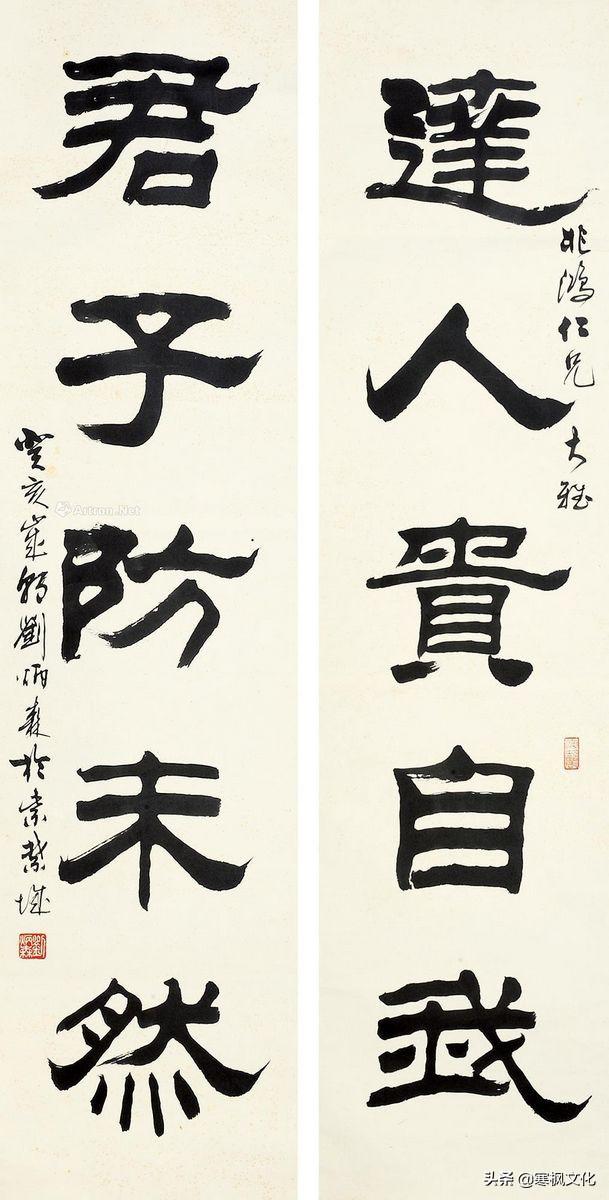 達人貴自我
鴻仁兄大雅
君子防未然
癸亥歲劉炳森於紫禁城
Artron.Net
头条 @寒枫文化